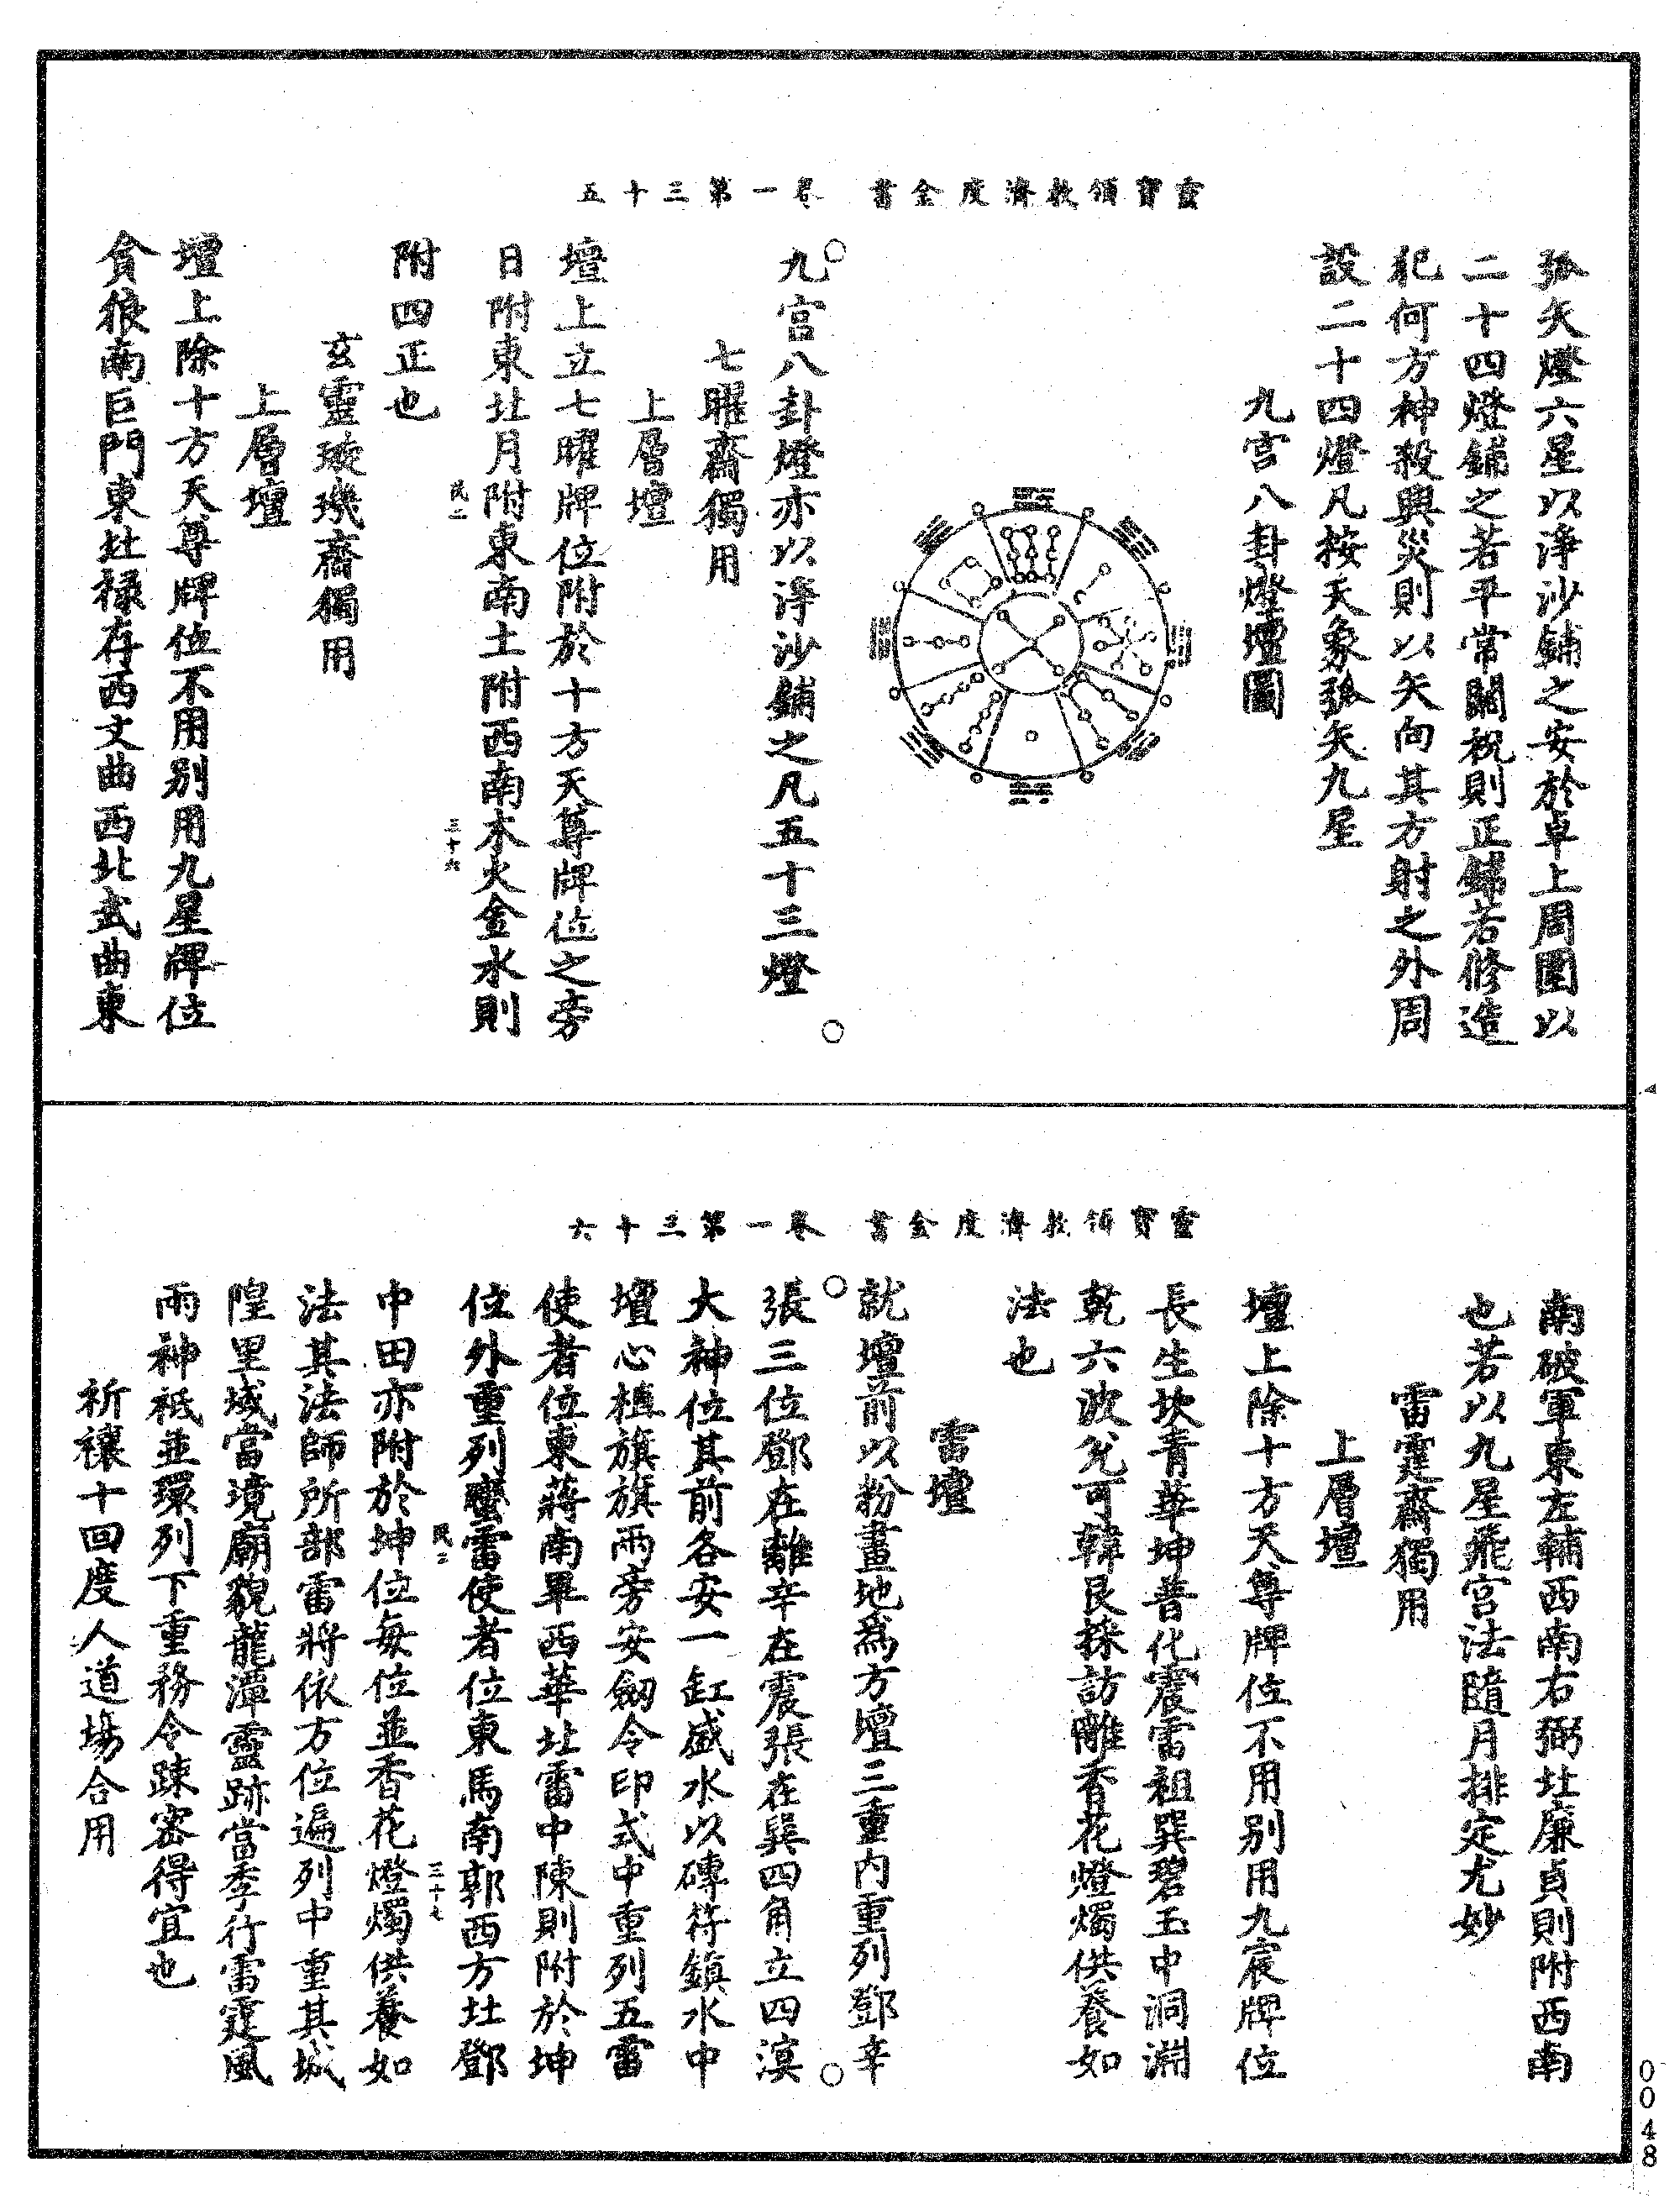 靈寶領教濟度金書　卷一第三十五
弧矢燈六星以淨沙鋪之安於卓上周圍以
二十四燈鋪之若平常關祝則正歸若修造
犯何方神殺興災則以矢向其方射之外周
設二十四燈凡按天象弧矢九星
九宫八卦燈壇圖
九宫八卦燈亦以淨沙鋪之凡五十三燈
七曜齋獨用
上層壇
壇上立七曜牌位附於十方天尊牌位之旁
日附東北月附東南土附西南木火金水則
附四正也
民二
三十六
玄靈璇璣齋獨用
上層壇
壇上除十方天尊牌位不用别用九星牌位
貪狼南巨門東北禄存西文曲西北武曲東
靈寶領教濟度金書　卷一第三十六
南破軍東左輔西南右弼北廉貞則附西南
也若以九星飛宫法隨月排定尤妙
雷霆齋獨用
上層壇
壇上除十方天尊牌位不用别用九宸牌位
長生坎青華坤普化震雷祖巽碧玉中洞淵
乾六波兌可韓艮採訪離香花燈燭供養如
法也
雷壇
就壇前以粉畫地爲方壇三重内重列鄧辛
張三位鄧在離辛在震張在巽四角立四溟
大神位其前各安一缸盛水以磚符鎮水中
壇心植旗旗兩旁安劒令印式中重列五雷
使者位東蔣南畢西華北雷中陳則附於坤
位外重列蠻雷使者位東馬南郭西方北鄧
民二
三十七
中田亦附於坤位每位並香花燈燭供養如
法其法師所部雷將依方位遍列中重其城
隍里域當境廟貌龍潭靈跡當季行雷霆風
雨神祇並環列下重務令踈密得宜也
祈禳十回度人道場合用
0048